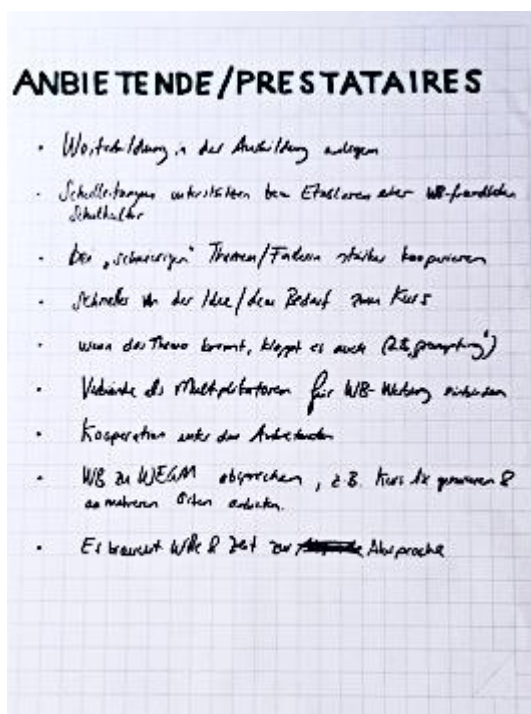 ANBIETENDE/PRESTATAIRES
· Weiterbildung in der Ausbildung anlegen
· Schulleitungen unterstützen beim Etablieren einer WB-freundlichen
Schulkultur
· Bei „schwierigen" Themen/Fächern stärker kooperieren
· Schneller von der Idee/dem Bedarf zum Kurs
· wenn das Thema brennt, klappt es auch (z.B. „prompting")
· Verbände als Multiplikatoren für WB-Werbung einbinden
· Kooperation unter den Anbietenden
· WB zu WEGM absprechen, z.B. Kurs 1x generieren &
an mehreren Orten anbieten.
· Es braucht Wille & Zeit zur Absprache